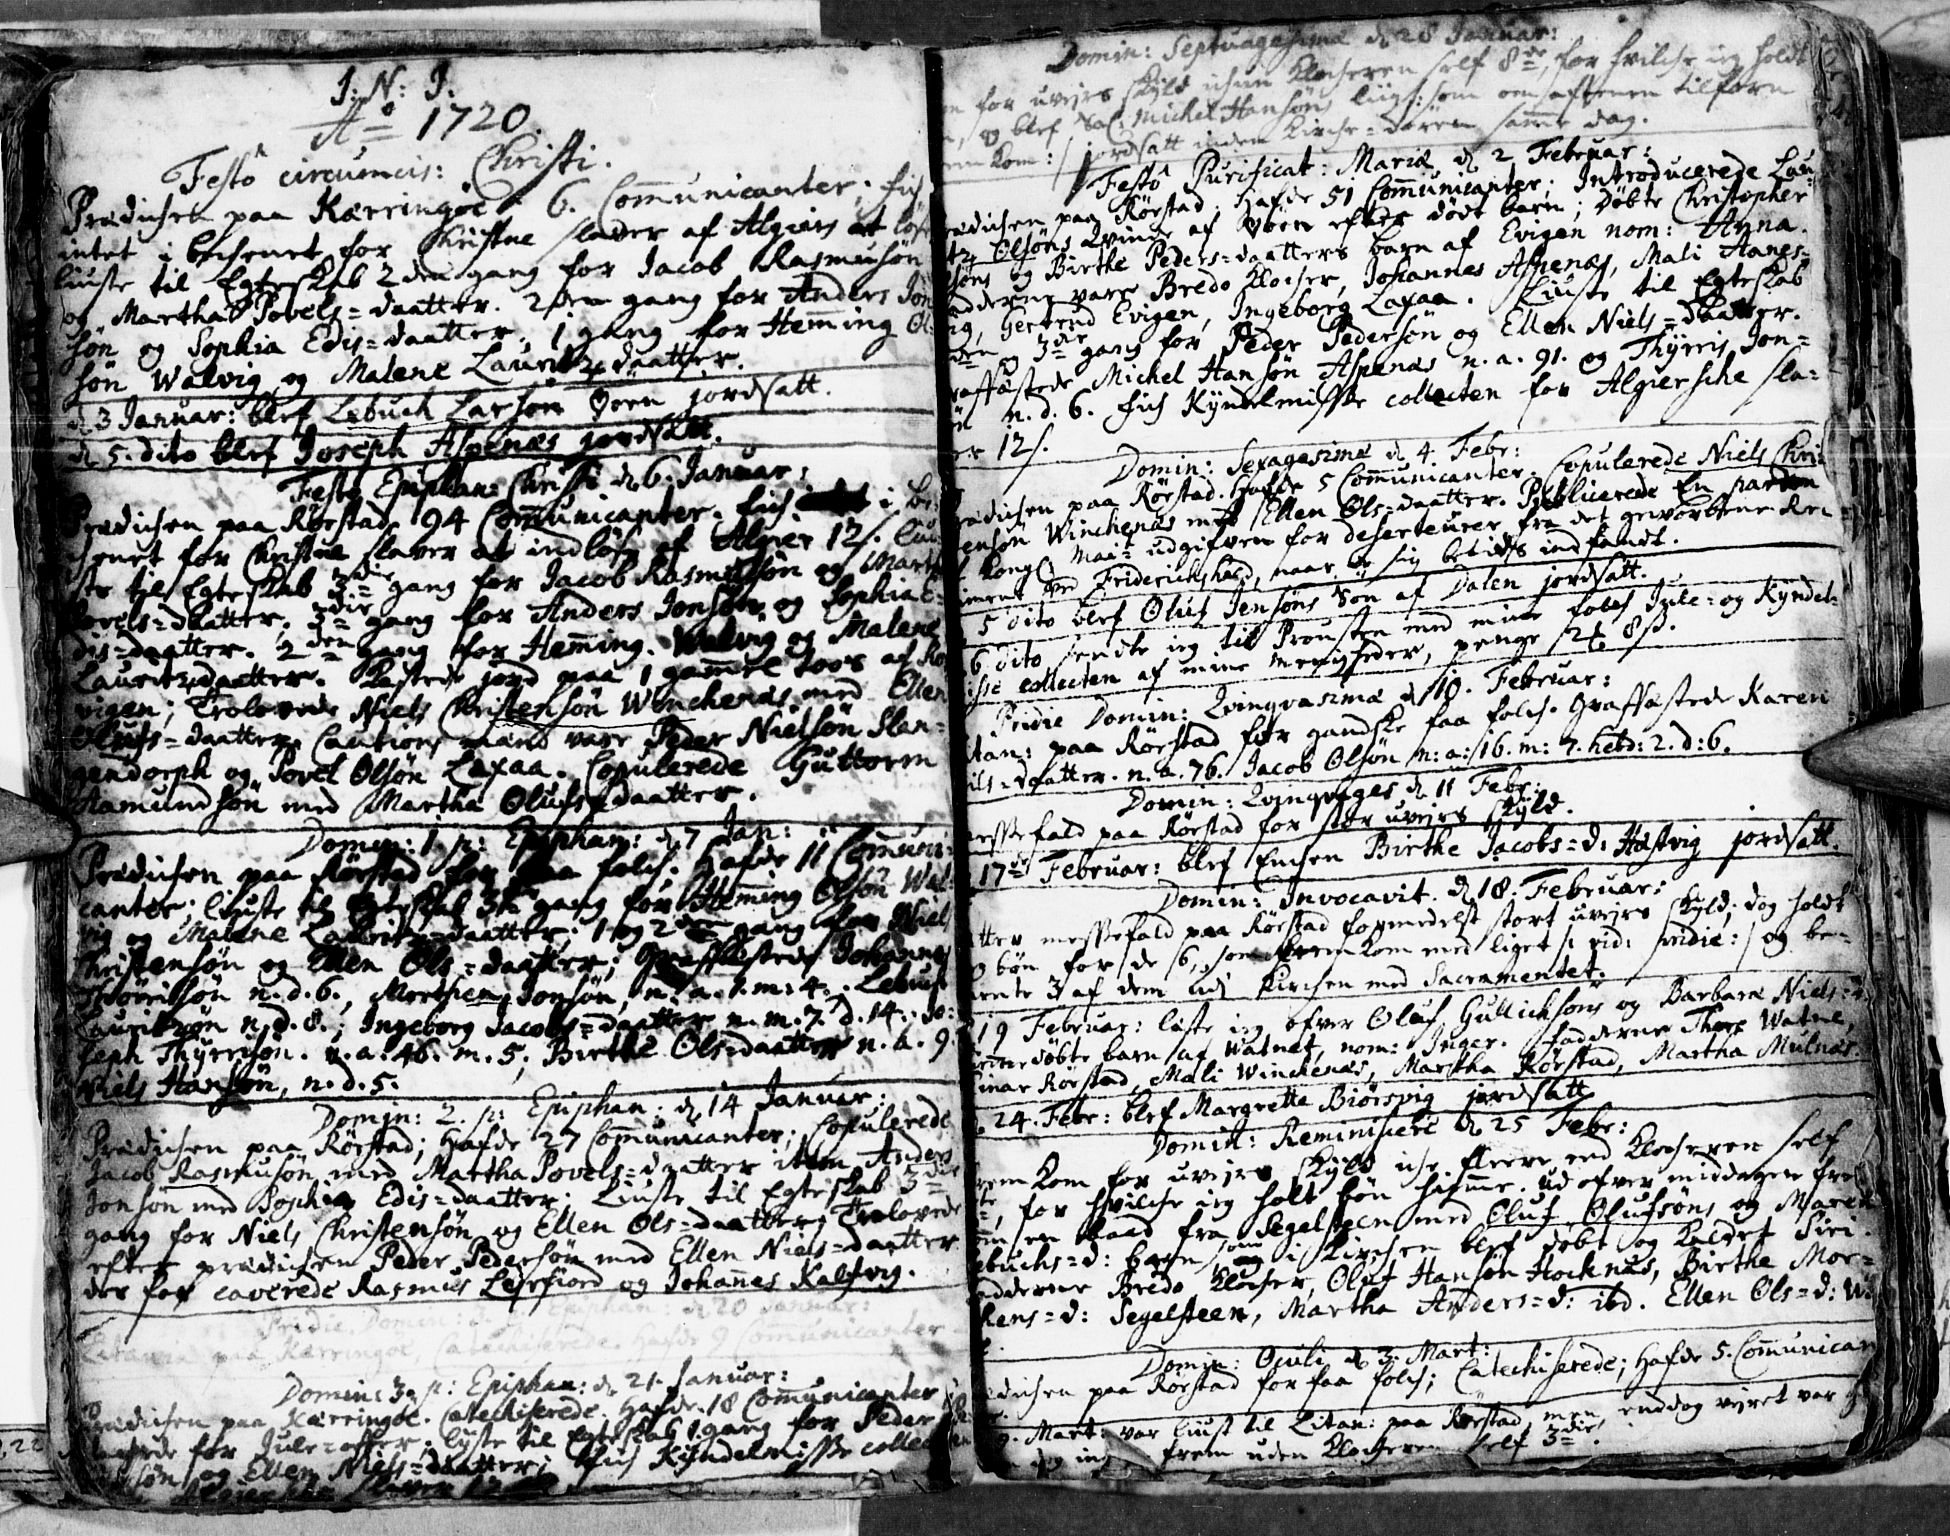 J: N: J.
Aō 1720.
Festo circumcis: Christi.
Prædichen paa Kærringøe. 6. Com̄unicanter; fich
intet i bechenet for Christne slaver af Algiers at løse
liuste til Egteskab 2den gang for Jacob Rasmusøn
og Martha Povels=daatter. 2den gang for Anders Jon
søn og Sophia Edis=daatter. 1 gang for Hem̄ing Ol:
søn Walvig og Malene Lauritz daatter.
d. 3 Januar: blef Lebuch Larsøn jordsatt.
d. 5. dito blef Joseph Aspenæs jordsatt.
Festo Epiphan: Christi d. 6. Januar:
Prædichen paa Rørstad 94 Com̄unicanter. fich i be:
chenet for Christne slaver at indløse af Algier 12 s. liu
ste til Egteskab 3die gang for Jacob Rasmusøn og Marth
Povels=daatter. 3die gang for Anders Jonsøn og Sophia E:
dis=daatter. 2den gang for Hem̄ing Walvig og Malene
Lauritz daatter. Kastede jord paa 1 gam̄el af
vigen; Trolovede Niels Christensøn Winchenæs med Ellen
Olufs=daatter. Cautions mænd vare Peder Nielsøn Slan=
gendorph og Povel Olsøn Laxaa. Copulerede Guttorm
Aamundsøn med Martha Olufs=daatter.
Domin: 1. p: Epiphan: d. 7 Jan:
Prædichen paa Rørstad for faa folch. Hafde 11 Com̄uni=
canter; liuste til Egteskab 3die gang for Hem̄ing Olsøn Wal=
vig og Malene Lauritz=daatter; 1 og 2den gang for Niels
Christensøn og Ellen Ols=daatter; Graffæstede Johannes
n. d. 6., Morthen Jonsøn, n. a. 1. m: 4. Lebuch
Lauritzøn n. d. 8.; Ingeborg Jacobs=daatter n. m. 7. d. 14. Jo:
seph Thyrrisøn. n. a. 46. m. 5; Birthe Ols=daatter n. a. 9.
Niels Hansøn, n. d. 5.
Domin: 2. p: Epiphan: d. 14 Januar:
Prædichen paa Rørstad; Hafde 27 Com̄unicanter; Copulerede
Jacob Rasmusøn med Martha Povels=daatter item Anders
Jonsøn med Sophia Edis=daatter. Liuste til Egteskab 3die
gang for Niels Christensøn og Ellen Ols=daatter; Trolovede
efter prædichen Peder Pedersøn med Ellen Niels=daatter
der for caverede Rasmus Leerfiord og Johan̄es Kalsvig.
Pridie Domin: 3. p. Epiphan: d. 20 Januar:
Litania paa Kærringøe, Catechiserede. Hafde 9 Com̄unicanter
Domin: 3. p: Epiphan: d. 21. Januar:
Prædichen paa Kærringøe. Catechiserede. Hafde 18 Com̄unicanter
for Jule=offer. lyste til Egteskab 1. gang for Peder
søn og Ellen Niels=daatter; fich Kyndelmisse collecten
slaver 12
Domin: Septuagesima d. 28 Januar:
for uveirs skyld uden Klocheren self 8de, for hvilche ieg holdt
og blef Sal: Michel Hansøns liig som om aftenen tilforn
Kom: / jordsatt inden Kirche=dørren sam̄e dag.
Festo Purificat: Mariæ d. 2 Februar:
Prædichen paa Rørstad. Hafde 51 Com̄unicanter; Introducerede Lau=
ritz Olsøns Qvinde af Vøen efter dødt barn; døbte Christopher
søns og Birthe Peders=daatters barn af Evigen nom: Anna.
Fadderne vare Bredo Klocher, Johannes Aspenæs, Mali Hanes=
vig, Gertrud Evigen, Ingeborg Laxaa. Liuste til Egteskab
2den og 3die gang for Peder Pedersøn og Ellen Niels=daatter.
Graffæstede Michel Hansøn Aspenæs n. a. 91. og Thyrris Jon=
søn n. d. 6. fich Kyndelmisse collecten for Algiersche sla=
ver 12 s.
Domin: Sexagesima d. 4 Febr:
Prædichen paa Rørstad. Hafde 5 Com̄unicanter. Copulerede Niels Chri=
stensøn Winchenæs med Ellen Ols=daatter. Publicerede En pardon
Kongl Maj: udgifven for deserteurer fra det gevorbene Re=
giment ved Friderichshald, naar de sig betids indfandt.
5 dito blef Oluf Jensøns Søn af Dalen jordsatt.
6 dito sendte ieg til Prousten med mine folch Jule= og Kyndel=
misse collecten af mine menigheder, penge 8 s.
Pridie Domin: Qvinqvasima d. 10. Februar:
Litan: paa Rørstad for gandske faa folch. Graffæstede Karen
Nils=daatter. n. a. 76. Jacob Olsøn n: a: 16. m: 7. hebd: 2. d: 6.
Domin: Qvinqvages d. 11 Febr:
Messefald paa Rørstad for stor uveirs skyld.
17de Februar: blef Enchen Birthe Jacobs=d: Hæstvig jordsatt.
Domin: Invocavit. d. 18. Februar:
Atter messefald paa Rørstad formedelst stort uveirs skyld; dog holdt
bøn for de 6, som frem kom med liget /: vid: pridie: / og be=
rente 3 af dem udj Kirchen med Sacramentet.
19 Februar: læste ieg ofver Oluf Gullichsøns og Barbara Niels=d:
døbte barn af Watnet, nom: Inger. Fadderne Thore Watne,
Einar Rørstad, Mali Winchenæs, Martha Rørstad, Martha Mulnæs.
24. Febr: blef Margretta Biørsvig jordsatt.
Domin: Reminiscere d. 25 Febr:
frem kom for uveirs skyld iche fleere end Klocheren self
for hvilche ieg holt bøn hiem̄e. ud ofver middagen frem
kom en baad fra Segelsteen med Oluf Olufsøns og Maren
Lebuchs=d: barn som i Kirchen blef døbt og kaldet Siri.
Fadderne Bredo Klocher, Oluf Hansøn Hochnæs, Birthe Mor=
thens=d: Segelsteen, Martha Anders=d: ibd. Ellen Ols=d:
Domin: Oculi d. 3. Mart:
Prædichen paa Rørstad for faa folch; Catechiserede; Hafde 5. Com̄unican
9. Mart: var liust til Litan: paa Rørstad, men enddog vejret var
frem uden Klocheren self 3die.